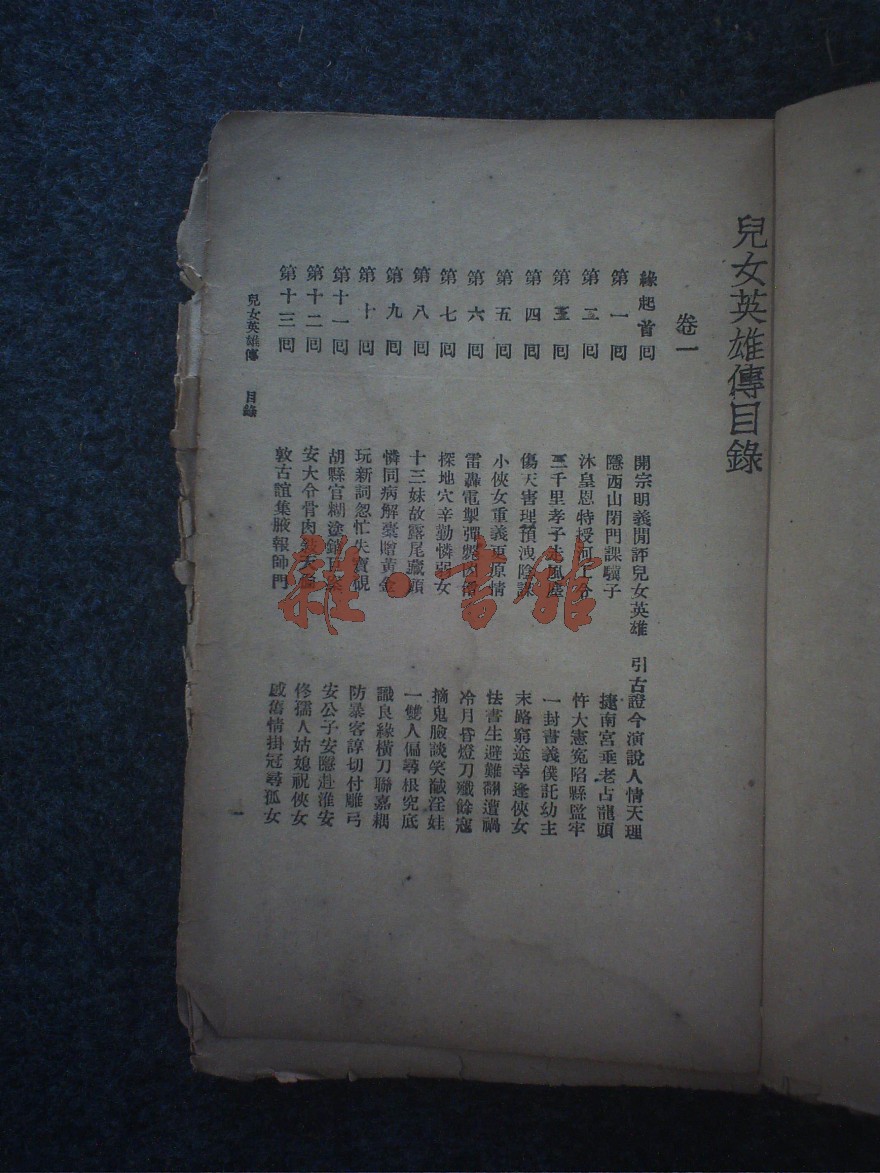 兒女英雄傳目錄
卷一
緣起首囘 開宗明義閒評兒女英雄 引古證今演說人情天理
第一囘 隱西山閉門課驥子 捷南宮垂老占龍頭
第二囘 沐皇恩特授河工令 忤大憲冤陷縣監牢
第三囘 三千里孝子走風塵 一封書義僕託幼主
第四囘 傷天害理預洩陰謀 末路窮途幸逢俠女
第五囘 小俠女重義更原情 怯書生避難翻遭禍
第六囘 雷轟電掣彈斃凶僧 冷月昏燈刀殲餘寇
第七囘 探地穴辛勤憐弱女 摘鬼臉談笑馘淫娃
第八囘 十三妹故露尾藏頭 一雙人偏尋根究底
第九囘 憐同病解囊贈黃金 識良緣橫刀聯嘉耦
第十囘 玩新詞忽忙失寶硯 防暴客諄切付雕弓
第十一囘 胡縣官糊塗銷 安公子安隱赴淮安
第十二囘 安大令骨肉 修孺人姑媳祝俠女
第十三囘 敦古誼集腋報師門 感舊情掛冠尋孤女
兒女英雄傳 目錄
一
雜·書館